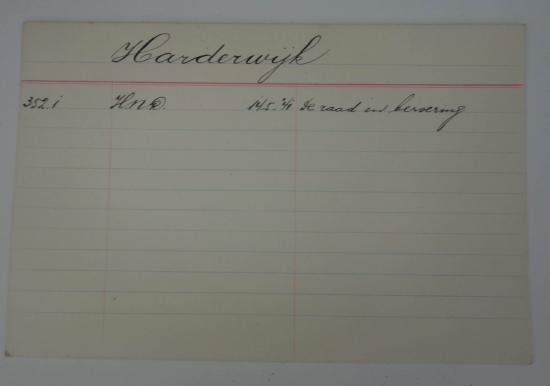 Harderwijk
352.i HND. 14/5.'/1 De raad in beroering